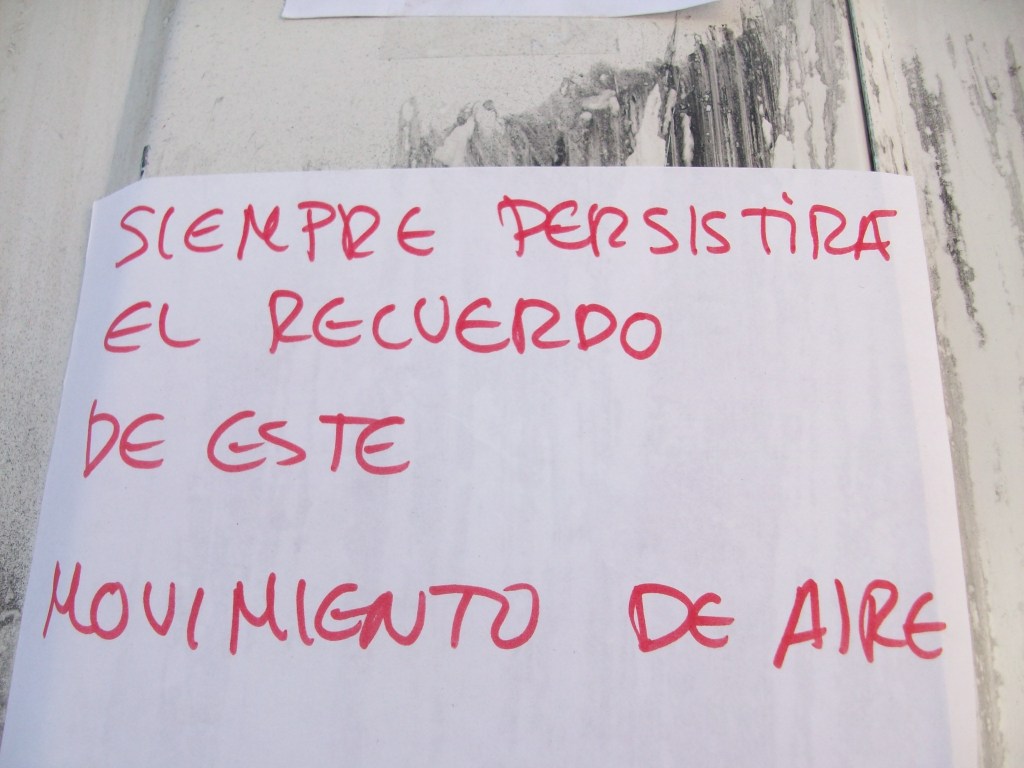 SIEMPRE PERSISTiRA
EL RECUERDO
DE ESTE
MOVIMIENTO DE AIRE